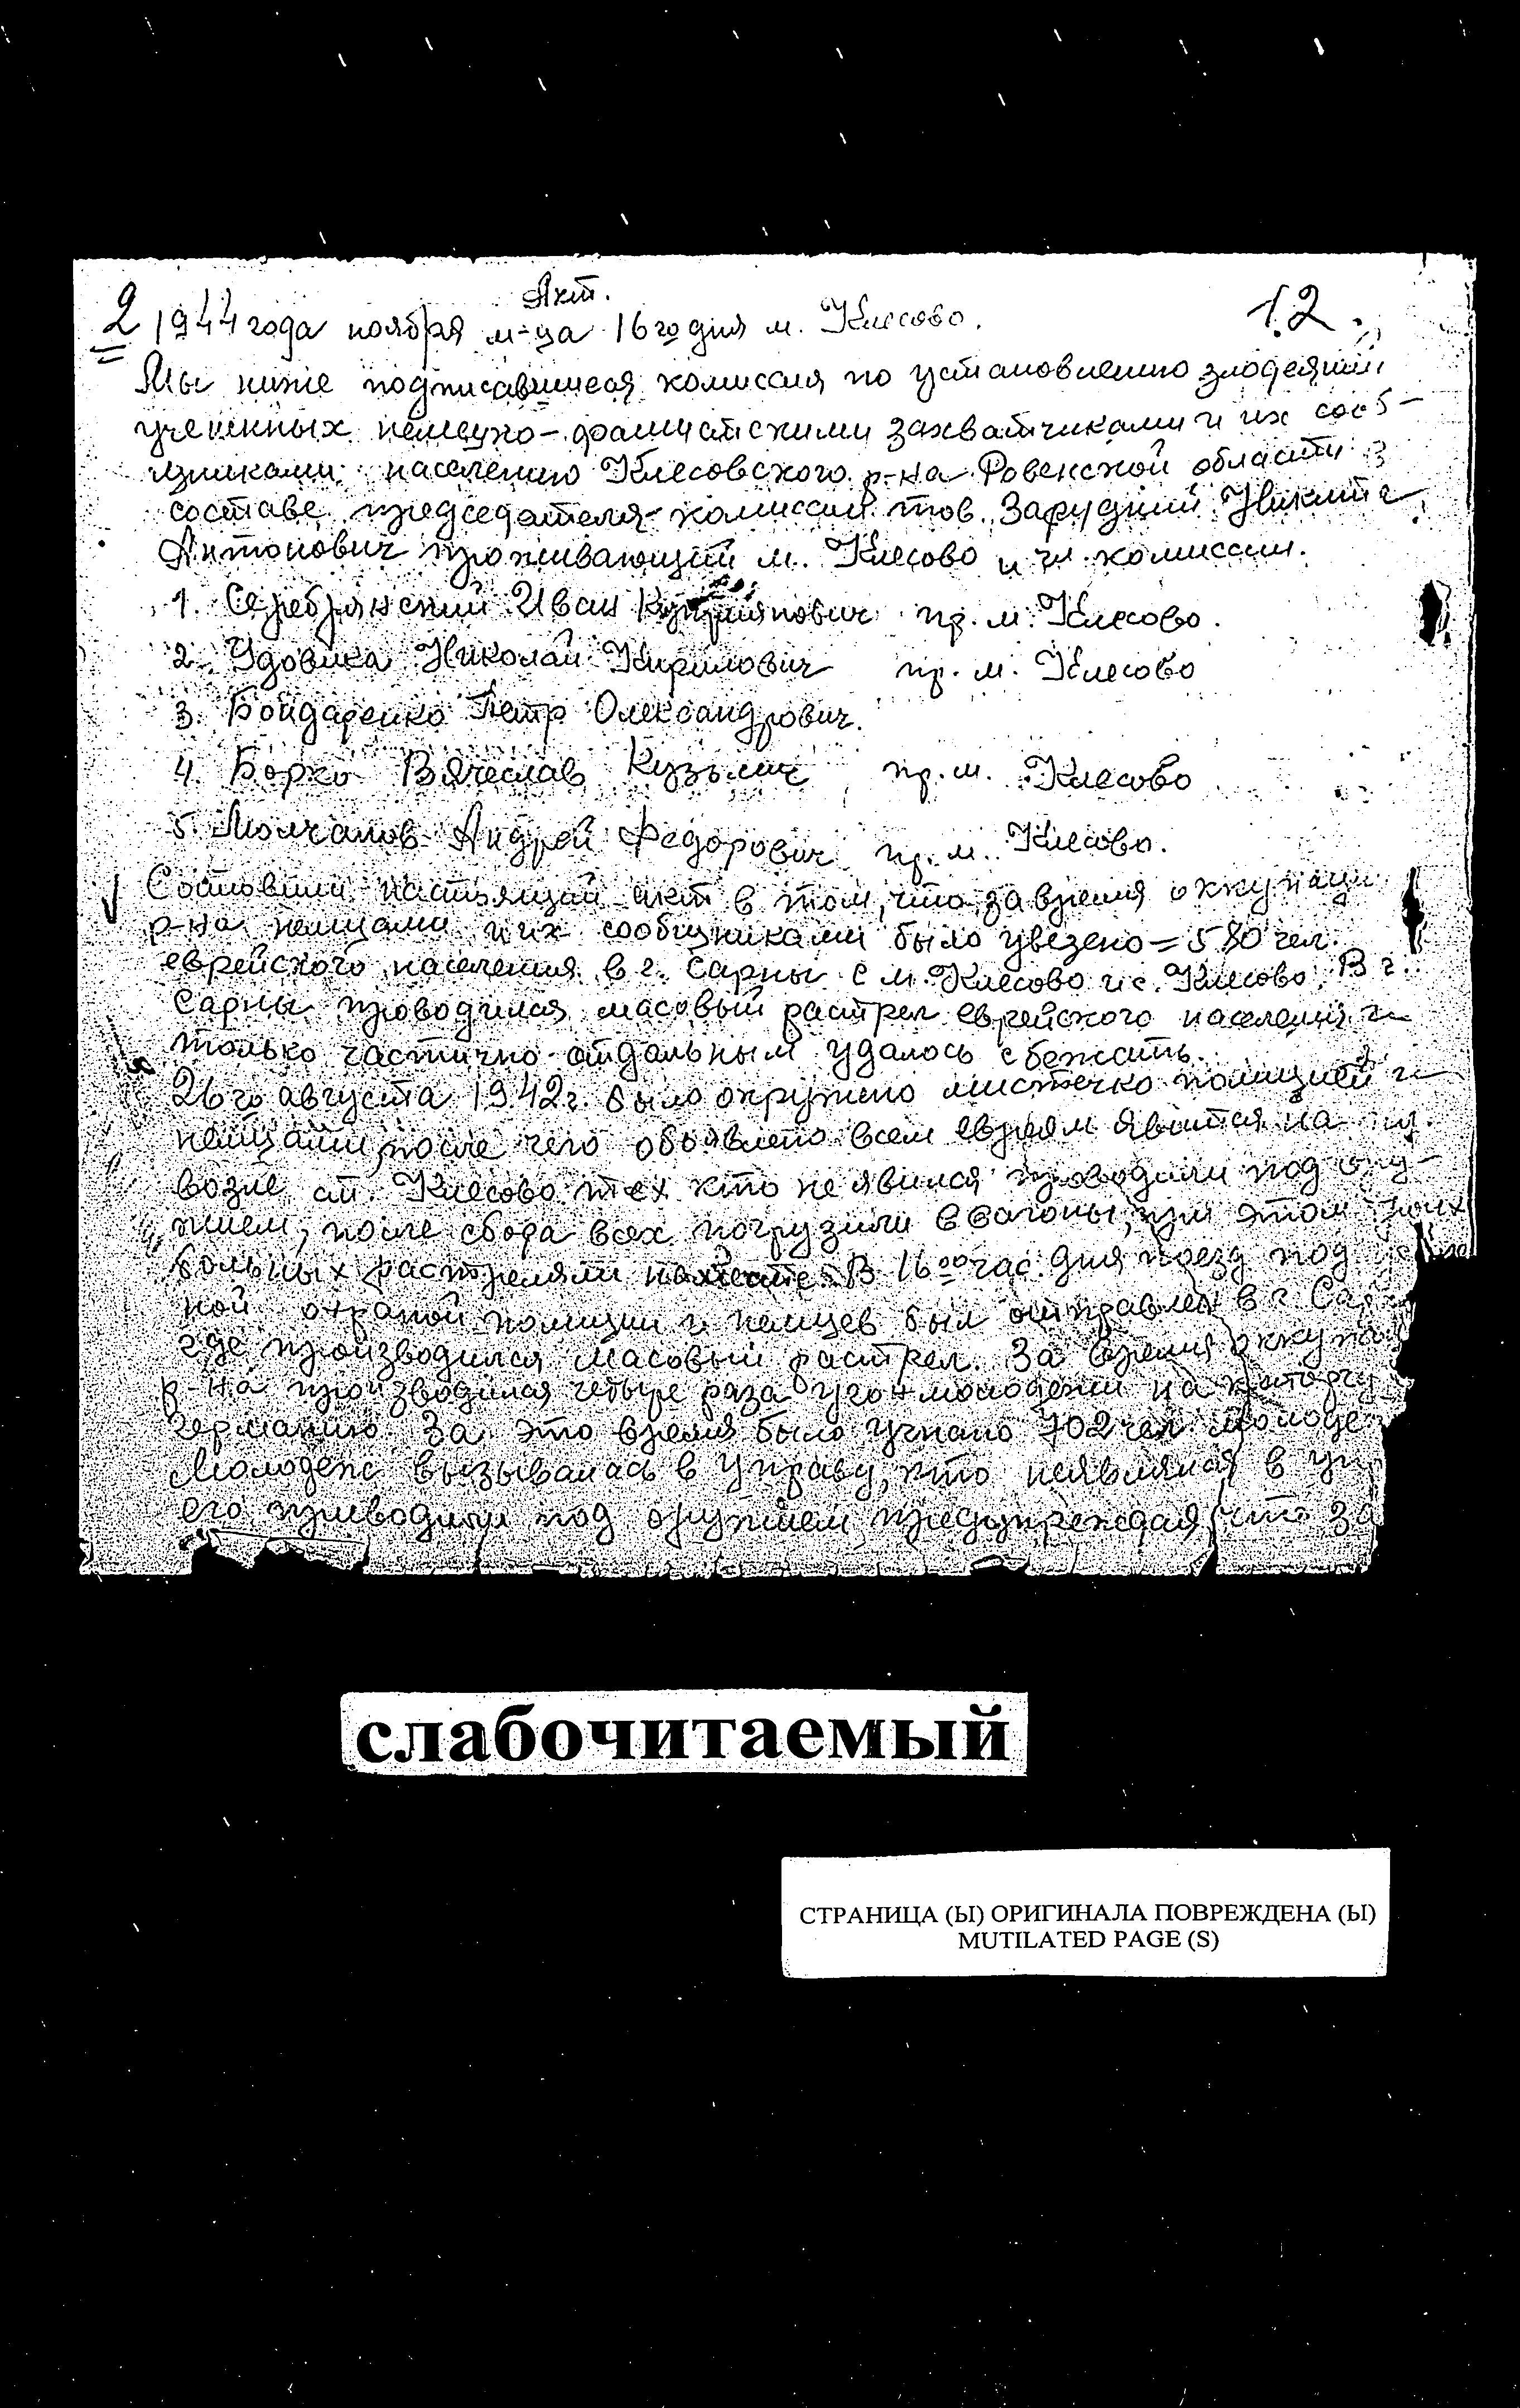 Акт.
2 1944 года ноября м-ца 16го дня м. Клесово. 12.
Мы ниже подписавшиеся комиссия по установлению злодеяний
учененных немецко-фашистскими захватчиками и их сооб-
щниками населению Клесовского р-на Ровенской области в
составе председателя комиссии тов. Зарудний Никита
Антонович проживающий м. Клесово и чл. комиссии.
1. Серебрянский Иван Куприянович пр. м. Клесово.
2. Удовика Николай Кирилович пр. м. Клесово
3. Бондаренко Петр Олександрович.
4. Борко Вячеслав Кузьмич пр. м. Клесово
5. Молчанов Андрей Федорович пр. м. Клесово.
Составили настоящий акт в том, что за время оккупаци
р-на немцами и их сообщниками было увезено = 580 чел.
еврейского населения в г. Сарны с м. Клесово и с. Клесово. В г.
Сарны проводился масовый растрел еврейского населения и
только частично отдальным удалось сбежать.
26го августа 1942 г. было окружено мистечко полицией и
немцами, после чего обоявлено всем евреям явится на
возле ст. Клесово тех кто не явился проводили под ору-
жием, после сбора всех погрузили в вагоны, при этом
больных растреляли на месте. В 16 00 час. дня поезд под
ной охраной полиции и немцев был отправлен в г. Сар
где производился масовый растрел. За время оккупа
р-на производился четыре раза угон молодежи на каторгу
Германию. За это время было угнано 702 чел. молоде
Молодежь вызывалась в управу, кто неявлялся в упр
его приводили под оружием, предупреждая что за
слабочитаемый
СТРАНИЦА (Ы) ОРИГИНАЛА ПОВРЕЖДЕНА (Ы)
MUTILATED PAGE (S)